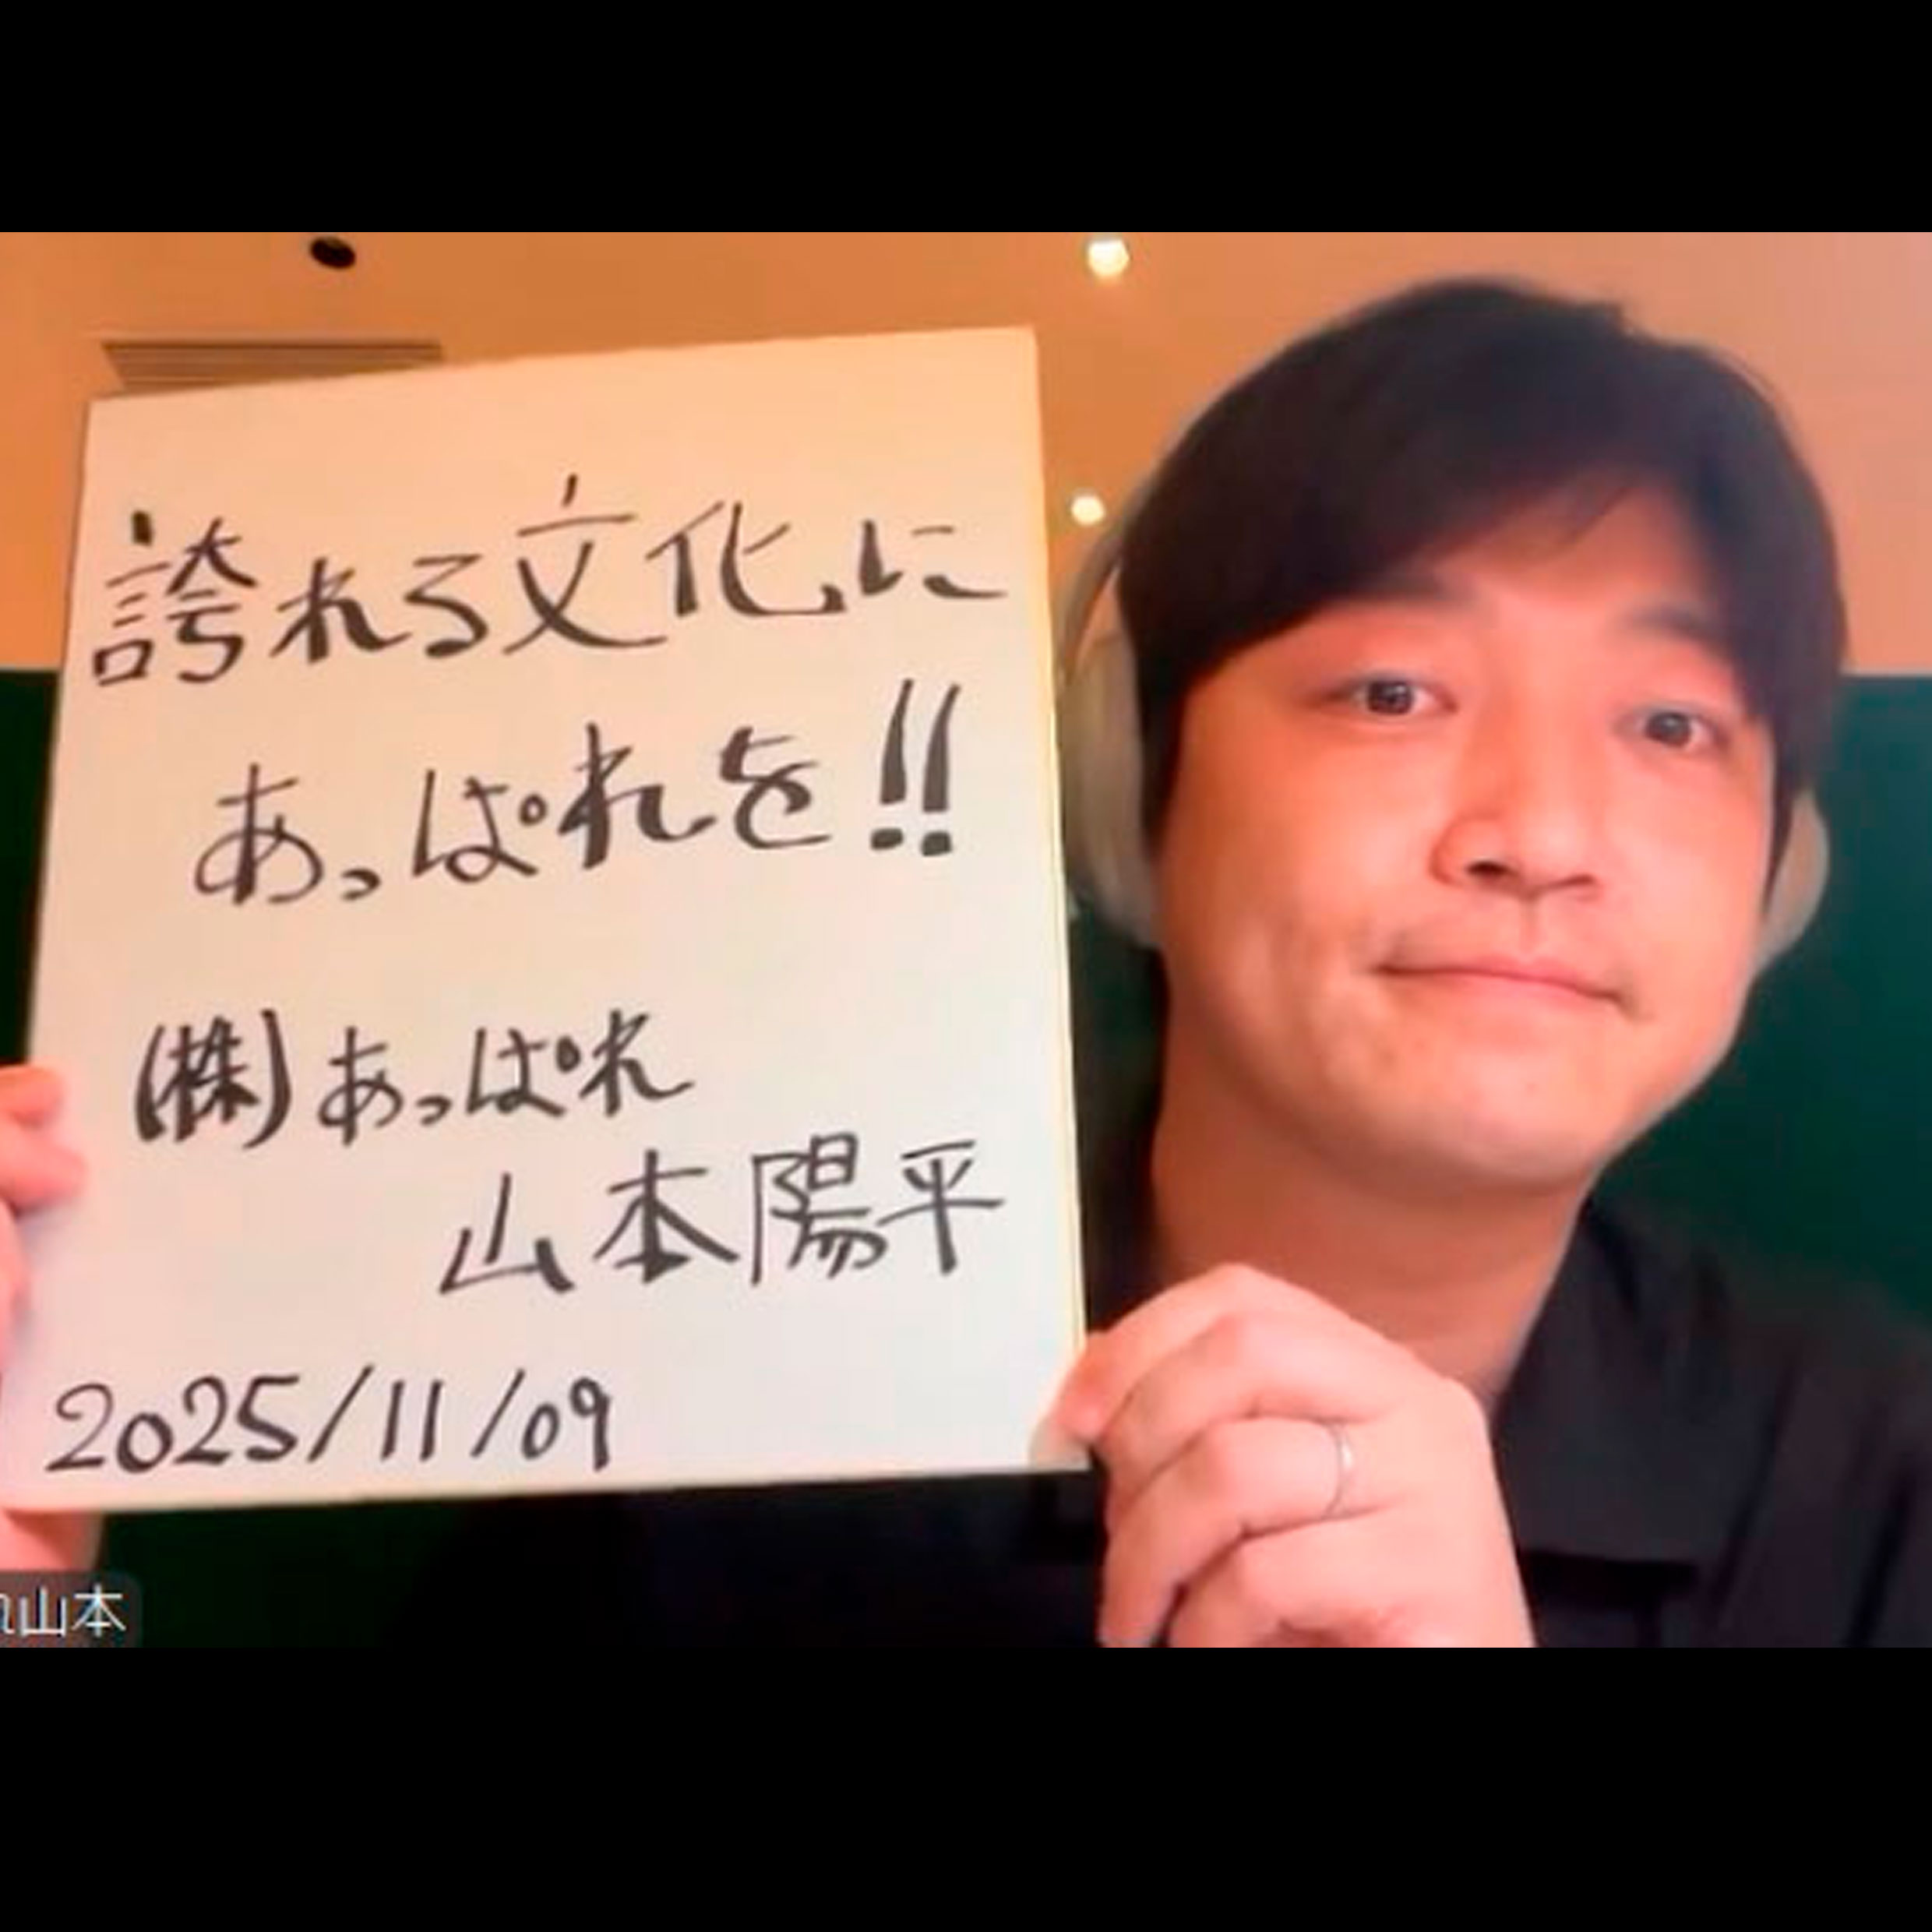 誇れる文化に
あっぱれを!!
(株)あっぱれ
山本陽平
2025/11/09
れ山本